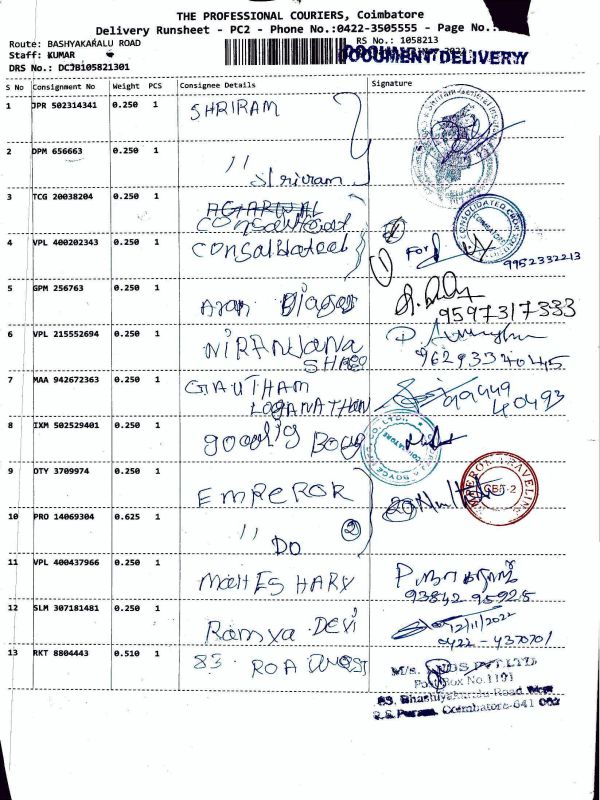 THE PROFESSIONAL COURIERS, Coimbatore
Delivery Runsheet - PC2 - Phone No.:0422-3505555 - Page No.:
Route: BASHYAKARALU ROAD
RS No.: 1058213
Staff: KUMAR
DOCUMENT DELIVERY
DRS No.: DCJB105821301
S No Consignment No Weight PCS Consignee Details Signature
1 JPR 502314341 0.250 1 SHRIRAM
2 DPM 656663 0.250 1 11 Shriram
3 TCG 20038204 0.250 1 AGARWAL
Consolidated
4 VPL 400202343 0.250 1 Consolidated For
9952332213
5 GPM 256763 0.250 1
9597317333
6 VPL 215552694 0.250 1 NIRANJANA
SHREE
9629334045
7 MAA 942672363 0.250 1 GAUTHAM
LOGANATHAN
99449
40493
8 IXM 502529401 0.250 1
9 DTY 3709974 0.250 1 EMPEROR
CBE-2
10 PRO 14069304 0.625 1 11 DO 2
11 VPL 400437966 0.250 1 MAHESHARY
93842 95925
12 SLM 307181481 0.250 1 Ramya DEVi
12/11/2022
0422 - 4370701
13 RKT 8804443 0.510 1 83 ROA
M/s. PVT LTD
Post Box No.1101
83, Bhashiyakaralu Road West
R.S.Puram, Coimbatore-641 002